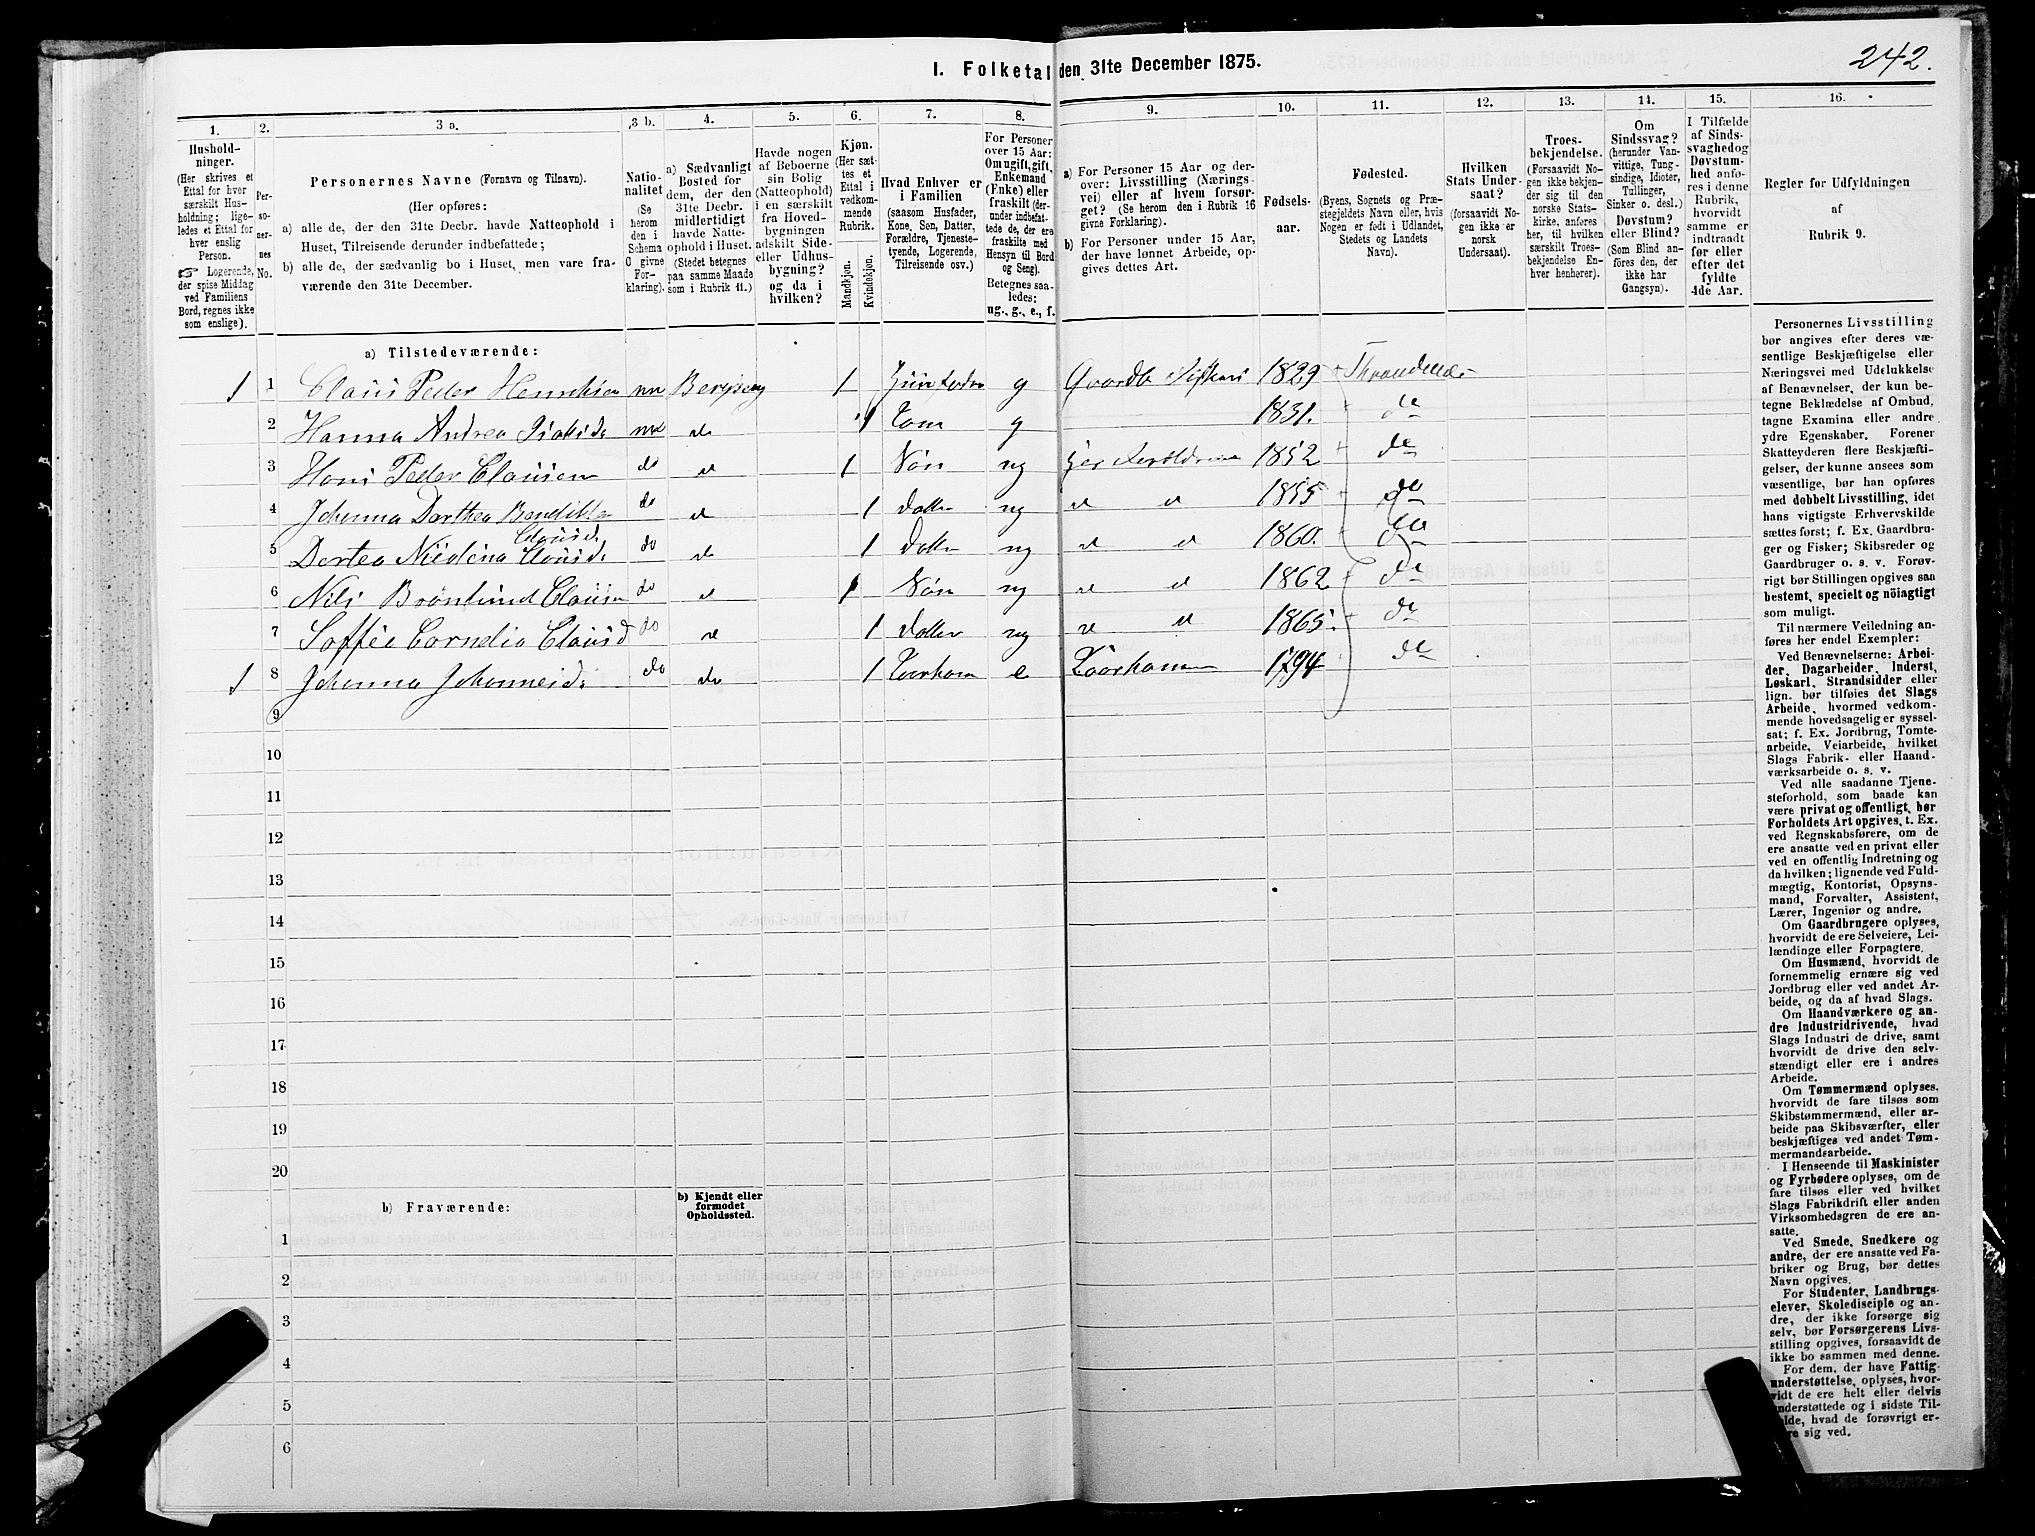 242.
1. Folketal den 31te December 1875.
1. 2. 3 a. 3 b. 4. 5. 6. 7. 8. 9. 10. 11. 12. 13. 14. 15. 16.
Hushold-
ninger.
(Her skrives et
Ettal for hver
særskilt Hus-
holdning; lige-
ledes et Ettal for
hver enslig
Person.
☞ Logerende,
der spise Middag
ved Familiens
Bord, regnes ikke
som enslige).
Per-
so-
ner-
nes
No.
Personernes Navne (Fornavn og Tilnavn).
(Her opføres:
a) alle de, der den 31te Decbr. havde Natteophold i
Huset, Tilreisende derunder indbefattede;
b) alle de, der sædvanlig bo i Huset, men vare fra-
værende den 31te December.
Natio-
nalitet
(Se
herom
den i
Schema
O givne
For-
klaring).
a) Sædvanligt
Bosted for
dem, der den
31te Decbr.
midlertidigt
havde Natte-
ophold i Huset.
(Stedet betegnes
paa samme Maade
som i Rubrik 11.)
Havde nogen
af Beboerne
sin Bolig
(Natteophold)
i en særskilt
fra Hoved-
bygningen
adskilt Side-
eller Udhus-
bygning?
og da i
hvilken?
Kjøn.
(Her sæt-
tes et
Ettal i
vedkom-
mende
Rubrik.
Mandkjøn.
Kvindekjøn.
Hvad Enhver er
i Familien
(saasom Husfader,
Kone, Søn, Datter,
Forældre, Tjeneste-
tyende, Logerende,
Tilreisende osv.)
For Personer
over 15 Aar:
Om ugift, gift,
Enkemand
(Enke) eller
fraskilt (der-
under indbefat-
tede de, der ere
fraskilte med
Hensyn til Bord
og Seng).
Betegnes saa-
ledes:
ug., g., e., f.
a) For Personer 15 Aar og der-
over: Livsstilling (Nærings-
vei) eller af hvem forsør-
get? (Se herom den i Rubrik 16
givne Forklaring).
b) For Personer under 15 Aar,
der have lønnet Arbeide, op-
gives dettes Art.
Fødsels-
aar.
Fødested.
(Byens, Sognets og Præ-
stegjeldets Navn eller, hvis
Nogen er født i Udlandet,
Stedets og Landets
Navn).
Hvilken
Stats Under-
saat?
(forsaavidt No-
gen ikke er
norsk
Undersaat).
Troes-
bekjendelse.
(Forsaavidt No-
gen ikke bekjen-
der sig til den
norske Stats-
kirke, anføres
her, til hvilken
særskilt Troes-
bekjendelse En-
hver henhører).
Om
Sindssvag?
(herunder Van-
vittige, Tung-
sindige, Idioter,
Tullinger,
Sinker o. desl.)
Døvstum?
eller Blind?
(Som Blind an-
føres den, der
ikke har
Gangsyn).
I Tilfælde
af Sinds-
svaghed og
Døvstum-
hed anfø-
res i denne
Rubrik,
hvorvidt
samme er
indtraadt
før eller
efter det
fyldte
4de Aar.
Regler for Udfyldningen
af
Rubrik 9.
a) Tilstedeværende:
1 1 Claus Peder Henriksen nn Bergseng 1 g Gaardb Fisker 1829 Throndenæs
2 Hanna Andrea Isaksd. nn do 1 Kone g 1831. do
3 Hans Peder Clausen do do 1 Søn ug 1852 do
4 Johanna Dorthea Bendikte Clausd. do do 1 Datter ug do do 1855 do
5 Dortea Nicolina Clausd. do do 1 Datter ug do do 1860. do
6 Nils Brønlund Clausen do do 1 Søn ug do do 1862 do
7 Soffie Cornelia Clausd do do 1 Datter ug do do 1865. do
1 8 Johanna Johannesd. do do 1 Kaarkone e Kaarkone 1794 do
9
10
11
12
13
14
15
16
17
18
19
20
b) Fraværende:
b) Kjendt eller
formodet
Opholdssted.
1
2
3
4
5
6
Personernes Livsstilling
bør angives efter deres væ-
sentlige Beskjæftigelse eller
Næringsvei med Udelukkelse
af Benævnelser, der kun be-
tegne Beklædelse af Ombud,
tagne Examina eller andre
ydre Egenskaber. Forener
Skatteyderen flere Beskjæfti-
gelser, der kunne ansees som
væsentlige, bør han opføres
med dobbelt Livsstilling, idet
hans vigtigste Erhvervskilde
sættes først; f. Ex. Gaardbru-
ger og Fisker; Skibsreder og
Gaardbruger o. s. v. Forøv-
rigt bør Stillingen opgives saa
bestemt, specielt og nøiagtigt
som muligt.
Til nærmere Veiledning an-
føres her endel Exempler:
Ved Benævnelserne: Arbei-
der, Dagarbeider, Inderst,
Løskarl, Strandsidder eller
lign. bør tilføies det Slags
Arbeide, hvormed vedkom-
mende hovedsagelig er syssel-
sat; f. Ex. Jordbrug, Tomte-
arbeide, Veiarbeide, hvilket
Slags Fabrik- eller Haand-
værksarbeide o. s. v.
Ved alle saadanne Tjene-
steforhold, som baade kan
være privat og offentligt, bør
Forholdets Art opgives, t. Ex.
ved Regnskabsførere, om de
ere ansatte ved en privat eller
ved en offentlig Indretning og
da hvilken; lignende ved Fuld-
mægtig, Kontorist, Opsyns-
mand, Forvalter, Assistent,
Lærer, Ingeniør og andre.
Om Gaardbrugere oplyses,
hvorvidt de ere Selveiere, Lei-
lændinge eller Forpagtere.
Om Husmænd, hvorvidt de
fornemmelig ernære sig ved
Jordbrug eller ved andet Ar-
beide, og da af hvad Slags.
Om Haandværkere og an-
dre Industridrivende, hvad
Slags Industri de drive, samt
hvorvidt de drive den selv-
stændigt eller ere i andres
Arbeide.
Om Tømmermænd oplyses,
hvorvidt de fare tilsøs som
Skibstømmermænd, eller ar-
beide paa Skibsværfter, eller
beskjæftiges ved andet Tøm-
mermandsarbeide.
I Henseende til Maskinister
og Fyrbødere oplyses, om de
fare tilsøs eller ved hvilket
Slags Fabrikdrift eller anden
Virksomhedsgren de ere an-
satte.
Ved Smede, Snedkere og
andre, der ere ansatte ved Fa-
briker og Brug, bør dettes
Navn opgives.
For Studenter, Landbrugs-
elever, Skoledisciple og an-
dre, der ikke forsørge sig
selv, bør Forsørgerens Livs-
stilling opgives, forsaavidt de
ikke bo sammen med denne.
For dem, der have Fattig-
understøttelse, oplyses, hvor-
vidt de ere helt eller delvis
understøttede og i sidste Til-
fælde, hvad de forøvrigt er-
nære sig ved.